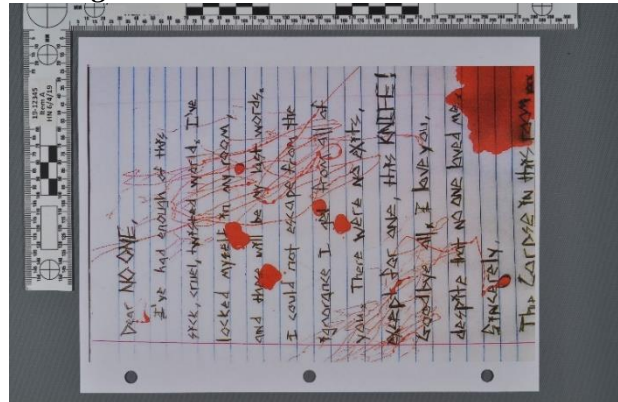 19-12345
Item A
HN 6/4/19
Dear NO ONE,
I've had enough of this
sick, cruel, twisted world. I've
locked myself in my room,
and these will be my last words.
I could not escape from the
ignorance I from all of
you. There were no exits,
except for one, this KNIFE!
Goodbye all, I love you,
despite that no one loved me.
Sincerely,
The Corpse in this room...